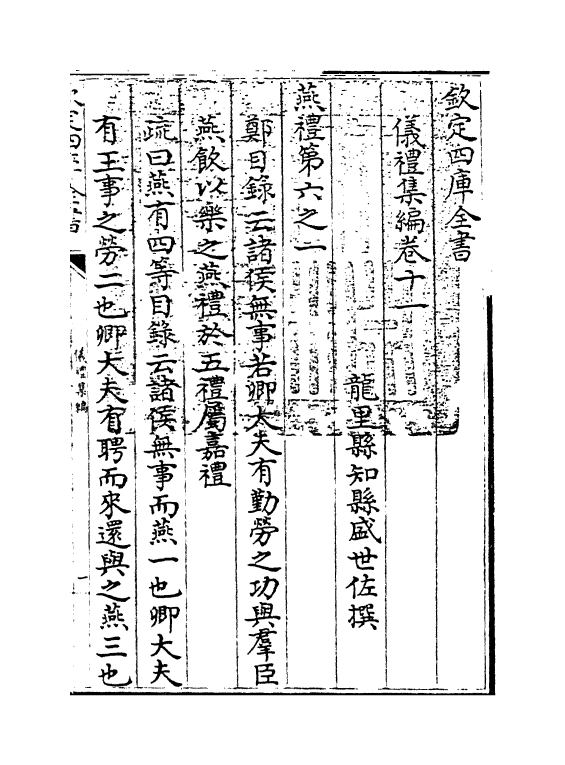 欽定四庫全書
儀禮集編卷十一
龍里縣知縣盛世佐撰
燕禮第六之一
鄭目錄云諸侯無事若卿大夫有勤勞之功與羣臣
燕飲以樂之燕禮於五禮屬嘉禮
疏曰燕有四等目錄云諸侯無事而燕一也卿大夫
有王事之勞二也卿大夫有聘而來還與之燕三也
儀禮集編
一